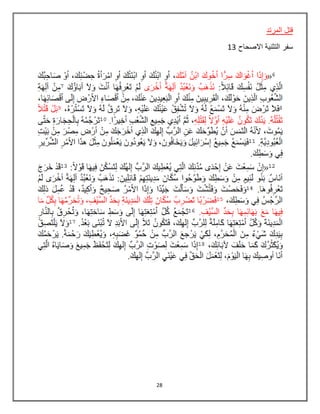 قتل المرتد
سفر التثنية الاصحاح 13
6«وَإِذَا أَغْوَاكَ سِرًّا أَخُوكَ ابْنُ أُمِّكَ، أَوِ ابْنُكَ أَوِ ابْنَتُكَ أَوِ امْرَأَةُ حِضْنِكَ، أَوْ صَاحِبُكَ
الَّذِي مِثْلُ نَفْسِكَ قَائِلاً: نَذْهَبُ وَنَعْبُدُ آلِهَةً أُخْرَى لَمْ تَعْرِفْهَا أَنْتَ وَلاَ آبَاؤُكَ 7مِنْ آلِهَةِ
الشُّعُوبِ الَّذِينَ حَوْلَكَ، الْقَرِيبِينَ مِنْكَ أَوِ الْبَعِيدِينَ عَنْكَ، مِنْ أَقْصَاءِ الأَرْضِ إِلَى أَقْصَائِهَا،
8فَلاَ تَرْضَ مِنْهُ وَلاَ تَسْمَعْ لَهُ وَلاَ تُشْفِقْ عَيْنُكَ عَلَيْهِ، وَلاَ تَرِقَّ لَهُ وَلاَ تَسْتُرْهُ، 9بَلْ قَتْلاً
تَقْتُلُهُ. يَدُكَ تَكُونُ عَلَيْهِ أَوَّلاً لِقَتْلِهِ، ثُمَّ أَيْدِي جَمِيعِ الشَّعْبِ أَخِيرًا. 10تَرْجُمُهُ بِالْحِجَارَةِ حَتَّى
يَمُوتَ، لأَنَّهُ الْتَمَسَ أَنْ يُطَوِّحَكَ عَنِ الرَّبِّ إِلهِكَ الَّذِي أَخْرَجَكَ مِنْ أَرْضِ مِصْرَ مِنْ بَيْتِ
الْعُبُودِيَّةِ. 11فَيَسْمَعُ جَمِيعُ إِسْرَائِيلَ وَيَخَافُونَ، وَلاَ يَعُودُونَ يَعْمَلُونَ مِثْلَ هذَا الأَمْرِ الشِّرِّيرِ
فِي وَسَطِكَ.
12«إِنْ سَمِعْتَ عَنْ إِحْدَى مُدُنِكَ الَّتِي يُعْطِيكَ الرَّبُّ إِلهُكَ لِتَسْكُنَ فِيهَا قَوْلاً: 13قَدْ خَرَجَ
أُنَاسٌ بَنُو لَئِيمٍ مِنْ وَسَطِكَ وَطَوَّحُوا سُكَّانَ مَدِينَتِهِمْ قَائِلِينَ: نَذْهَبُ وَنَعْبُدُ آلِهَةً أُخْرَى لَمْ
تَعْرِفُوهَا. 14وَفَحَصْتَ وَفَتَّشْتَ وَسَأَلْتَ جَيِّدًا وَإِذَا الأَمْرُ صَحِيحٌ وَأَكِيدٌ، قَدْ عُمِلَ ذلِكَ
الرِّجْسُ فِي وَسَطِكَ، 15فَضَرْبًا تَضْرِبُ سُكَّانَ تِلْكَ الْمَدِينَةِ بِحَدِّ السَّيْفِ، وَتُحَرِّمُهَا بِكُلِّ مَا
فِيهَا مَعَ بَهَائِمِهَا بِحَدِّ السَّيْفِ. 16تَجْمَعُ كُلَّ أَمْتِعَتِهَا إِلَى وَسَطِ سَاحَتِهَا، وَتُحْرِقُ بِالنَّارِ
الْمَدِينَةَ وَكُلَّ أَمْتِعَتِهَا كَامِلَةً لِلرَّبِّ إِلهِكَ، فَتَكُونُ تَلاًّ إِلَى الأَبَدِ لاَ تُبْنَى بَعْدُ. 17وَلاَ يَلْتَصِقْ
بِيَدِكَ شَيْءٌ مِنَ الْمُحَرَّمِ، لِكَيْ يَرْجعَ الرَّبُّ مِنْ حُمُوِّ غَضَبِهِ، وَيُعْطِيَكَ رَحْمَةً. يَرْحَمُكَ
وَيُكَثِّرُكَ كَمَا حَلَفَ لآبَائِكَ، 18إِذَا سَمِعْتَ لِصَوْتِ الرَّبِّ إِلهِكَ لِتَحْفَظَ جَمِيعَ وَصَايَاهُ الَّتِي
أَنَا أُوصِيكَ بِهَا الْيَوْمَ، لِتَعْمَلَ الْحَقَّ فِي عَيْنَيِ الرَّبِّ إِلهِكَ.
28